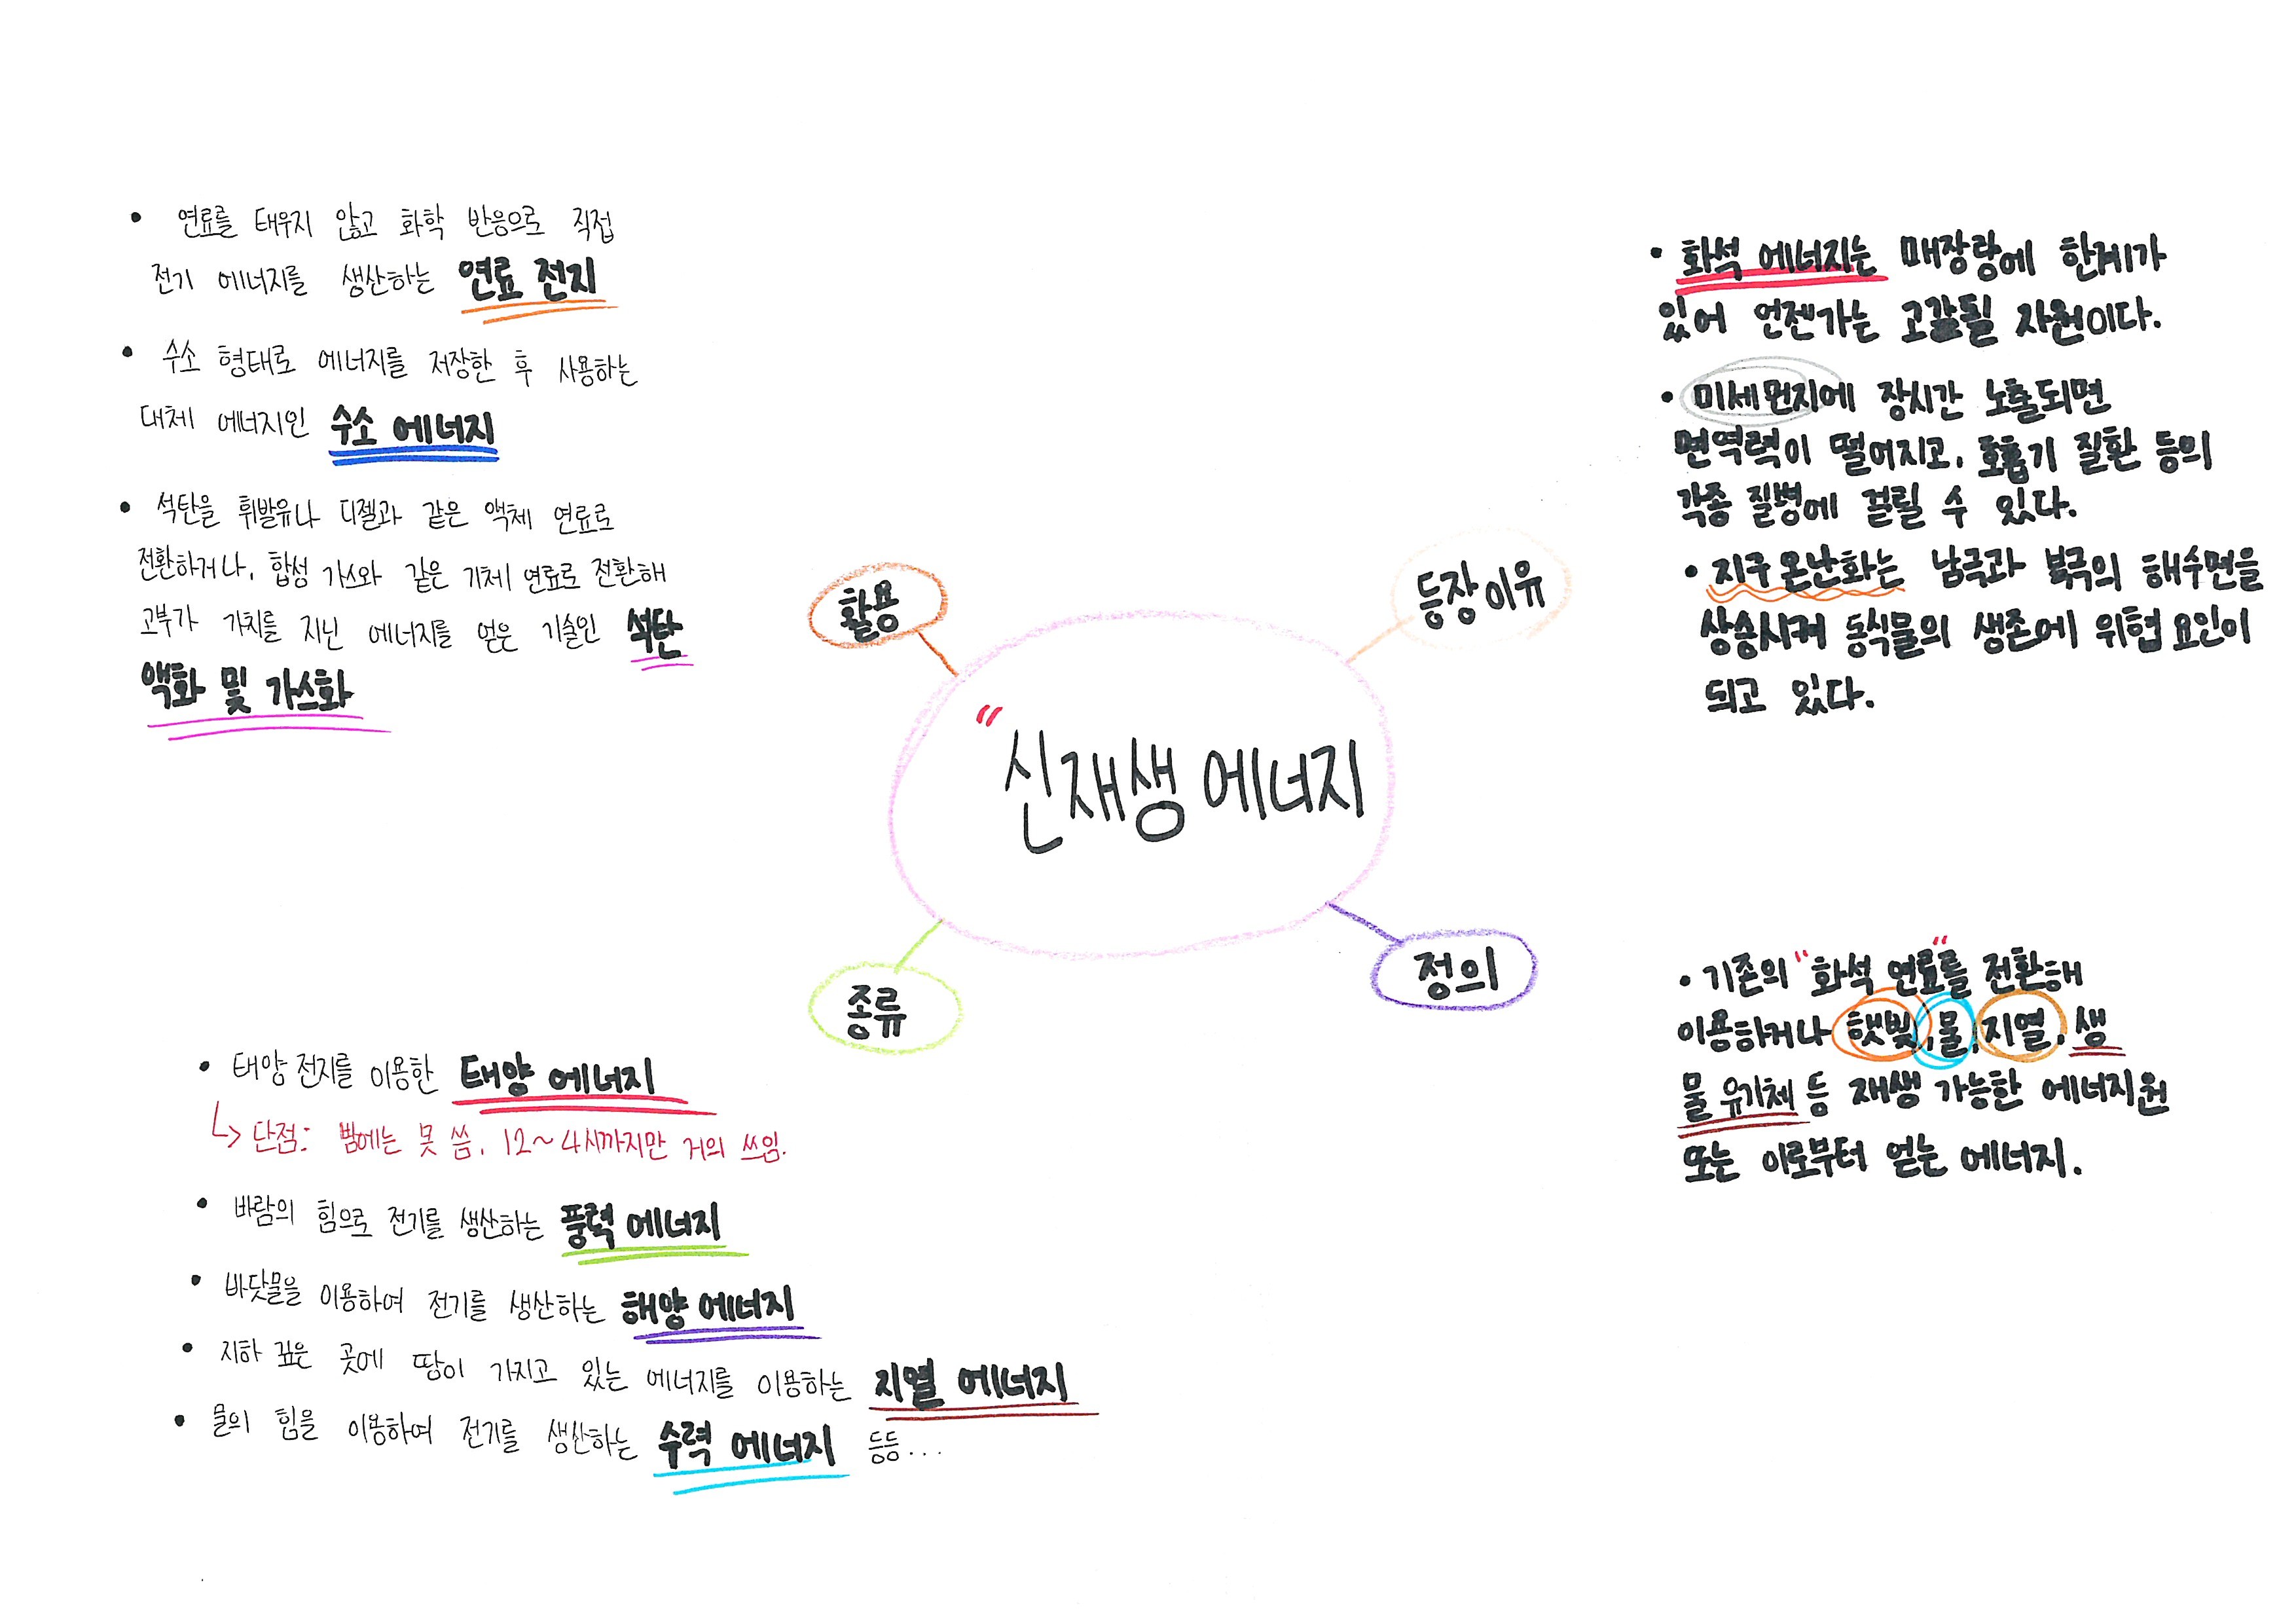 • 연료를 태우지 않고 화학 반응으로 직접
전기 에너지를 생산하는 연료 전지
• 수소 형태로 에너지를 저장한 후 사용하는
대체 에너지인 수소 에너지
• 석탄을 휘발유나 디젤과 같은 액체 연료로
전환하거나, 합성 가스와 같은 기체 연료로 전환해
고부가 가치를 지닌 에너지를 얻은 기술인 석탄
액화 및 가스화
• 화석 에너지는 매장량에 한계가
있어 언젠가는 고갈될 자원이다.
• 미세먼지에 장시간 노출되면
면역력이 떨어지고, 호흡기 질환 등의
각종 질병에 걸릴 수 있다.
• 지구 온난화는 남극과 북극의 해수면을
상승시켜 동식물의 생존에 위협 요인이
되고 있다.
활용
등장이유
"신재생 에너지
종류
정의
• 태양 전지를 이용한 태양 에너지
↳ 단점: 밤에는 못 씀, 12~4시까지만 거의 쓰임.
• 바람의 힘으로 전기를 생산하는 풍력 에너지
• 바닷물을 이용하여 전기를 생산하는 해양 에너지
• 지하 깊은 곳에 땅이 가지고 있는 에너지를 이용하는 지열 에너지
• 물의 힘을 이용하여 전기를 생산하는 수력 에너지 등등...
• 기존의 "화석 연료"를 전환해
이용하거나 햇빛, 물, 지열, 생
물 유기체 등 재생 가능한 에너지원
또는 이로부터 얻는 에너지.